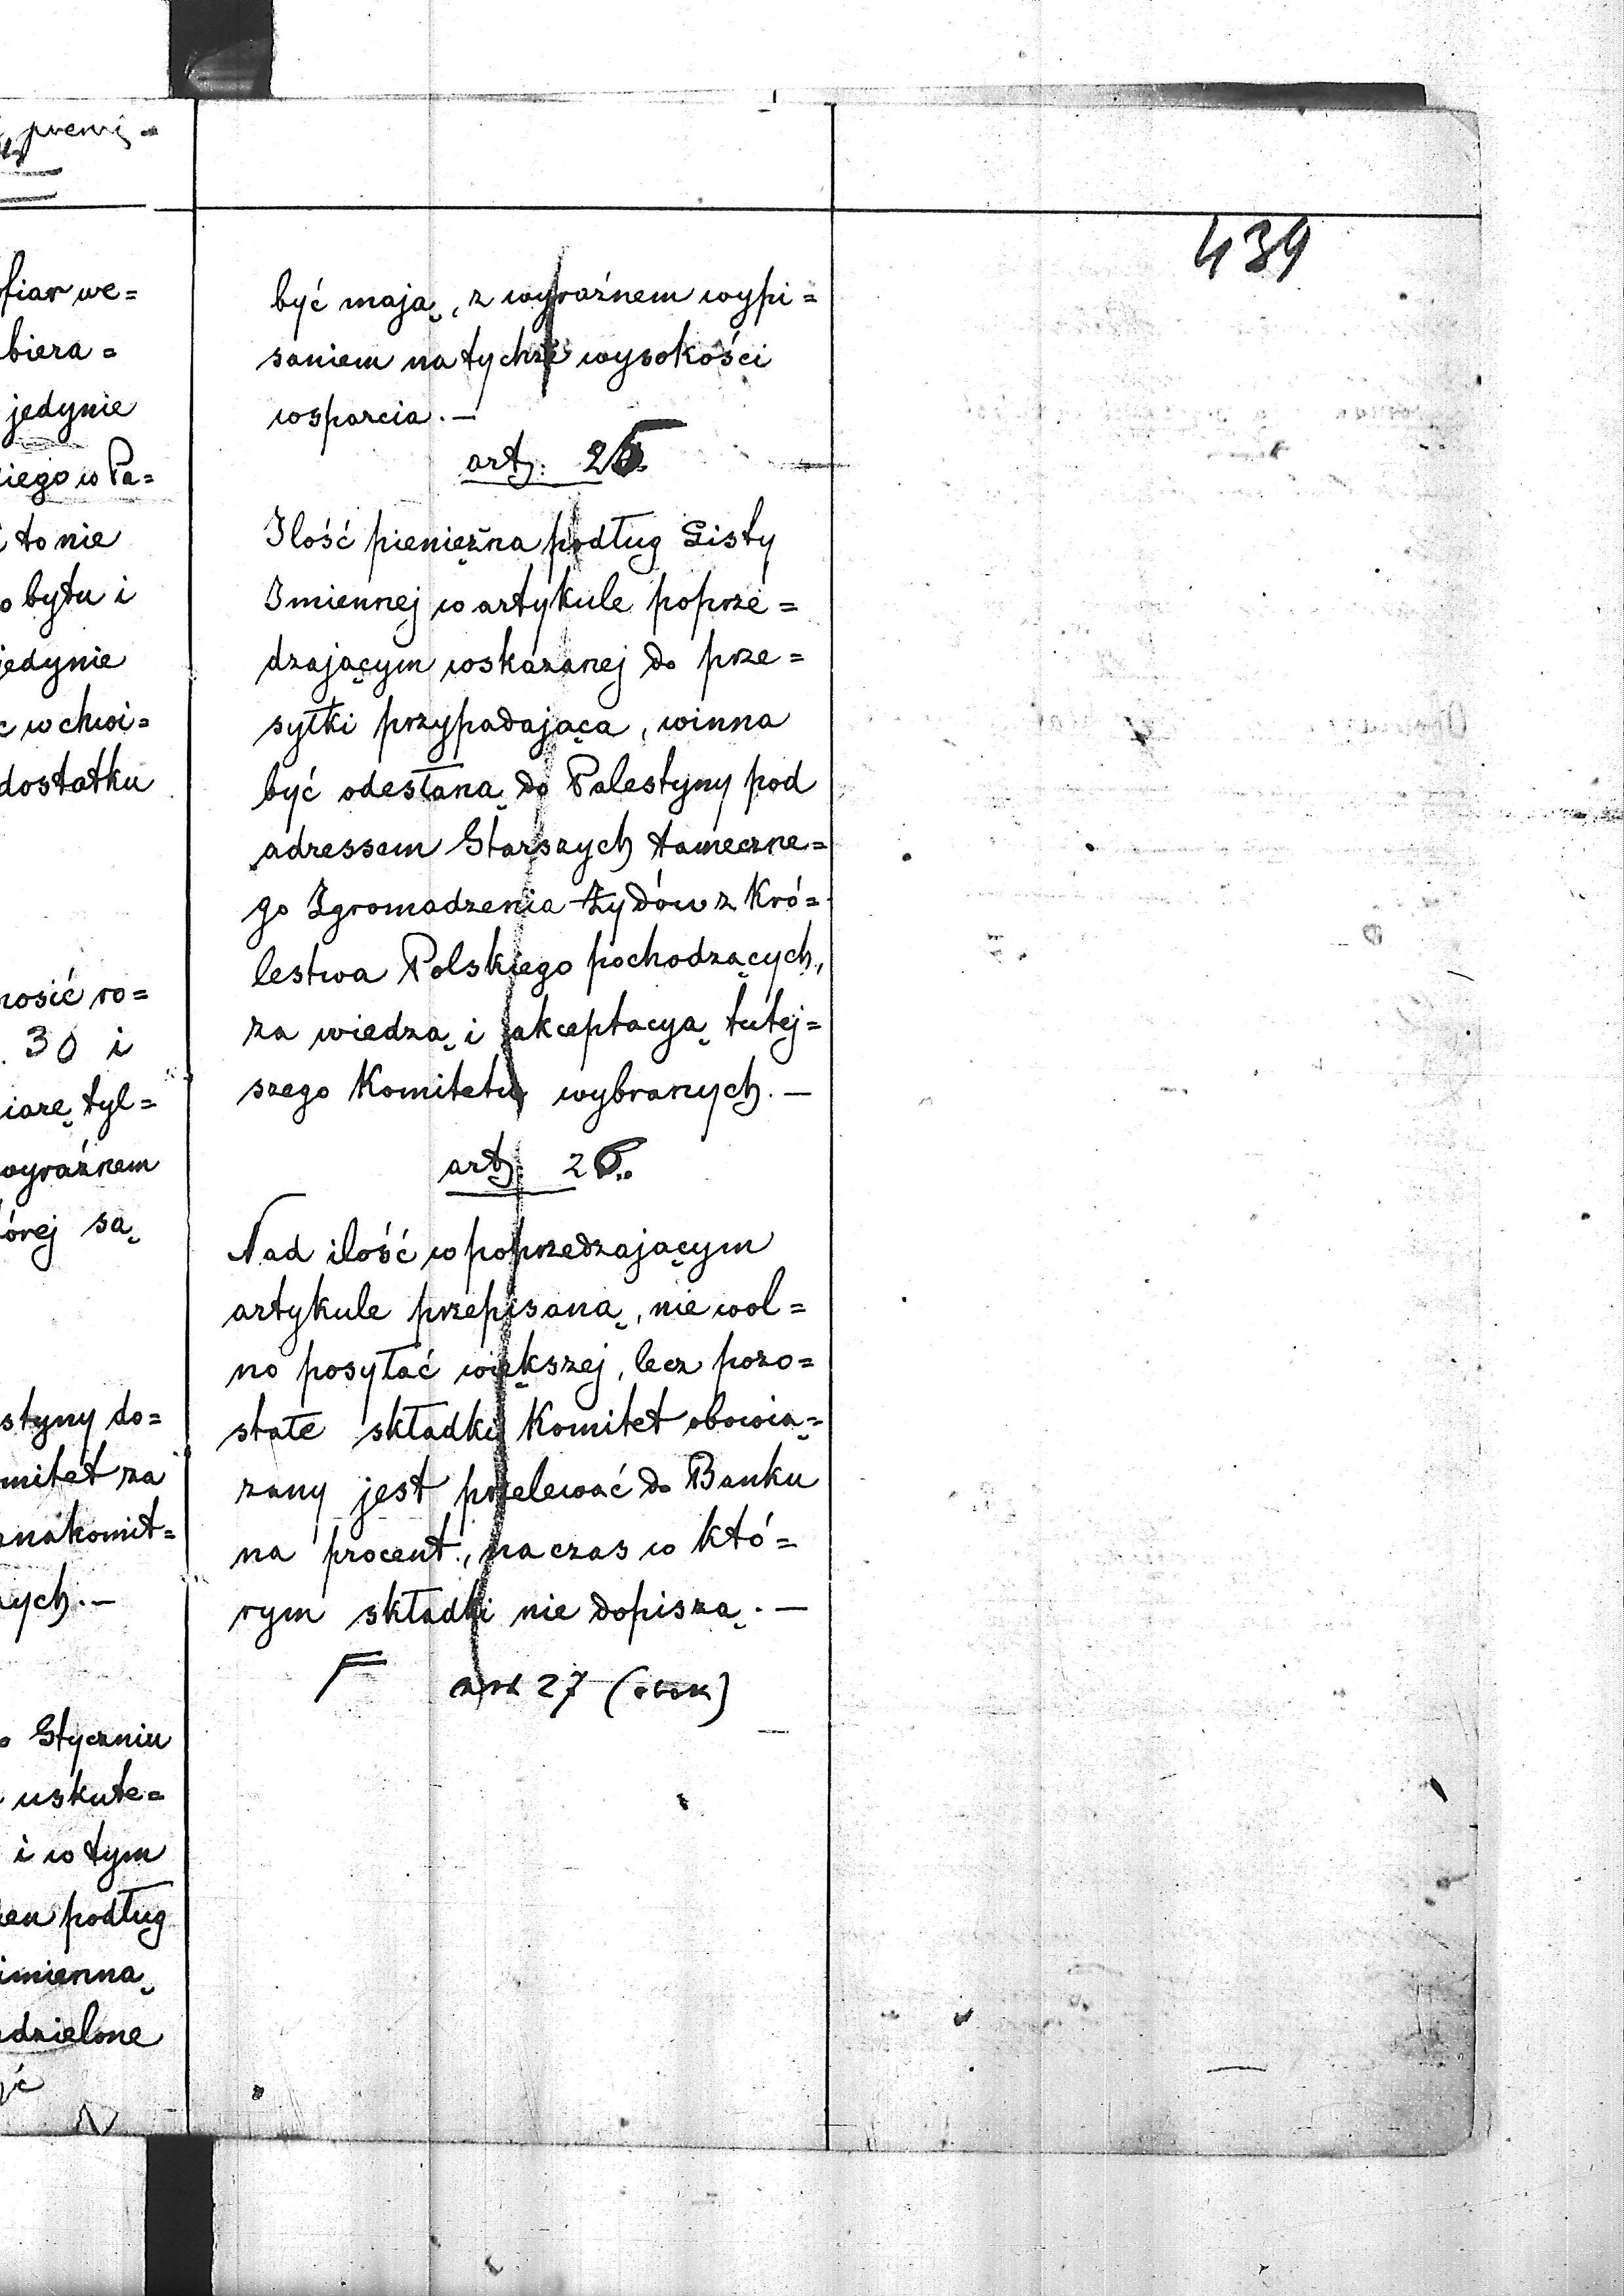 premi-
fiar we=
biera=
jedynie
iego w Pa=
to nie
bytu i
jedynie
w chwi=
dostatku
nosić ro=
30 i
iarę tyl=
wyraźnem
órej są
styny do=
mitet za
znakomit=
ych.—
Styczniu
uskute=
i w tym
podług
imienną
dzielone
być mają, z wyraźnem wypi=
saniem na tychże wysokości
wsparcia.—
art. 25
Ilość pieniężna podług Listy
Imiennej w artykule poprze=
dzającym wskazanej do prze=
syłki przypadająca, winna
być odesłaną do Palestyny pod
adressem Starszych tameczne=
go Zgromadzenia Żydów z Kró=
lestwa Polskiego pochodzących,
za wiedzą i akceptacyą tutej=
szego Komitetu wybranych.—
art. 26.
Nad ilość w poprzedzającym
artykule przepisaną, nie wol=
no posyłać większej, lecz pozo=
stałe składki Komitet obowią=
zany jest przelewać do Banku
na procent, na czas w któ=
rym składki nie dopiszą.—
art 27 (obok)
439